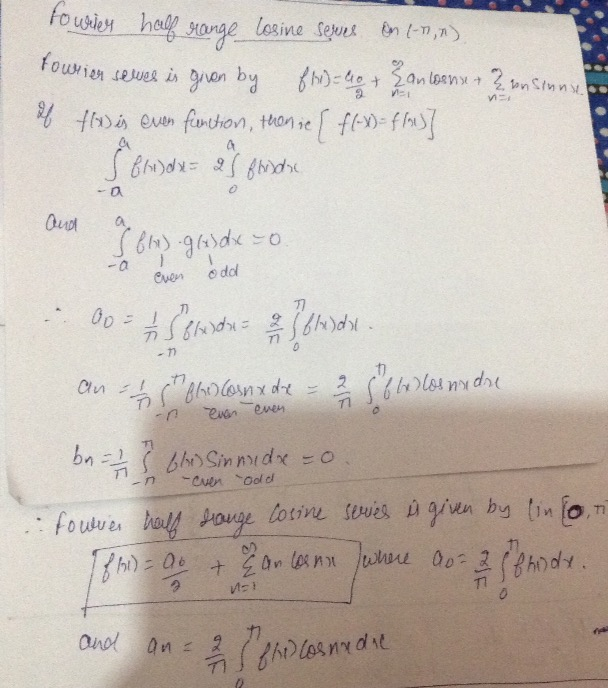 Fourier half range Cosine series on (-π, π)
Fourier series is given by f(x) = a₀/2 + ∞Σn=1 an cosnx + Σn=1 bn Sinnx.
If f(x) is even function, then ie [f(-x) = f(x)]
∫₋ₐᵃ f(x)dx = 2∫₀ᵃ f(x)dx
and ∫₋ₐᵃ f(x) · g(x)dx = 0
even odd
∴ a₀ = 1/π ∫_-π^π f(x)dx = 2/π ∫_0^π f(x)dx.
an = 1/π ∫_-π^π f(x) cosnx dx = 2/π ∫_0^π f(x) cosnx dx
even even
bn = 1/π ∫_-π^π f(x) Sinnx dx = 0.
even odd
∴ Fourier half range Cosine series is given by (in [0, π
f(x) = a₀/2 + ∞Σn=1 an cosnx where a₀ = 2/π ∫_0^π f(x)dx.
and an = 2/π ∫_0^π f(x) cosnx dx